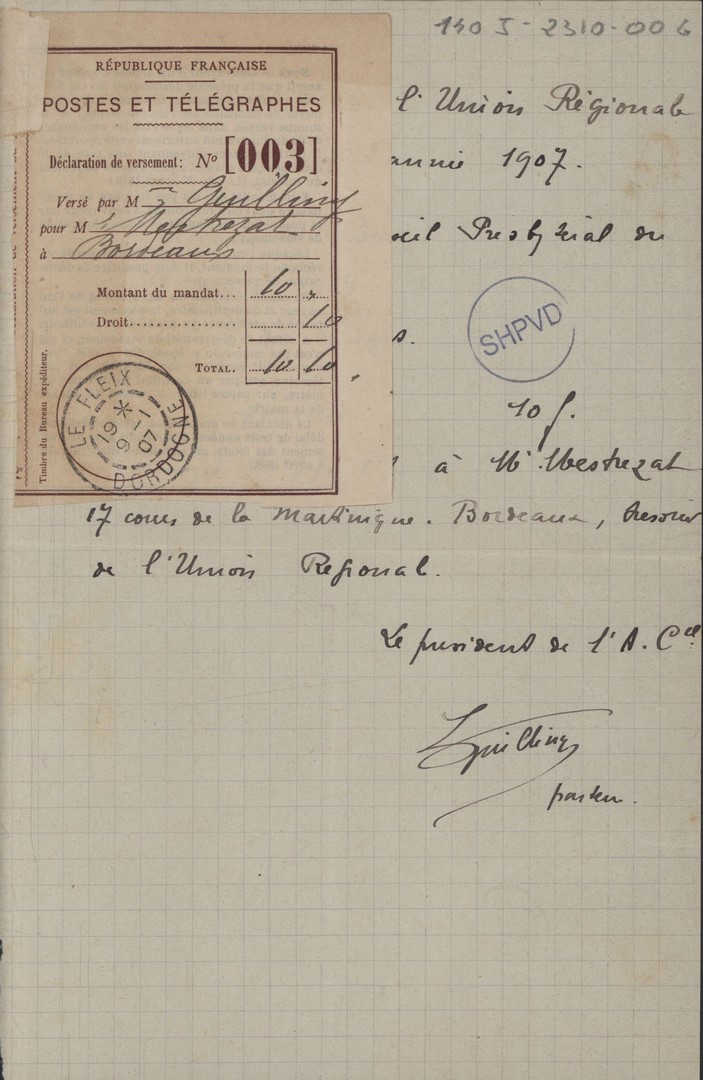 140 J-2310-006
RÉPUBLIQUE FRANÇAISE
POSTES ET TÉLÉGRAPHES
Déclaration de versement: Nº [003]
Versé par M Guilling
pour M Mestrezat
à Bordeaux
Montant du mandat... 10 "
Droit............... 10
TOTAL. 10 10
Timbre du Bureau expéditeur.
LE FLEIX
19 9-1 07
DORDOGNE
l'Union Régionale
année 1907.
eil Presbytéral du
SHPVD
s.
10 f.
à Mr Mestrezat
17 cours de la Martinique. Bordeaux, tresorier
de l'Union Regional.
Le president de l'A. Cel
Guilling
pasteur.